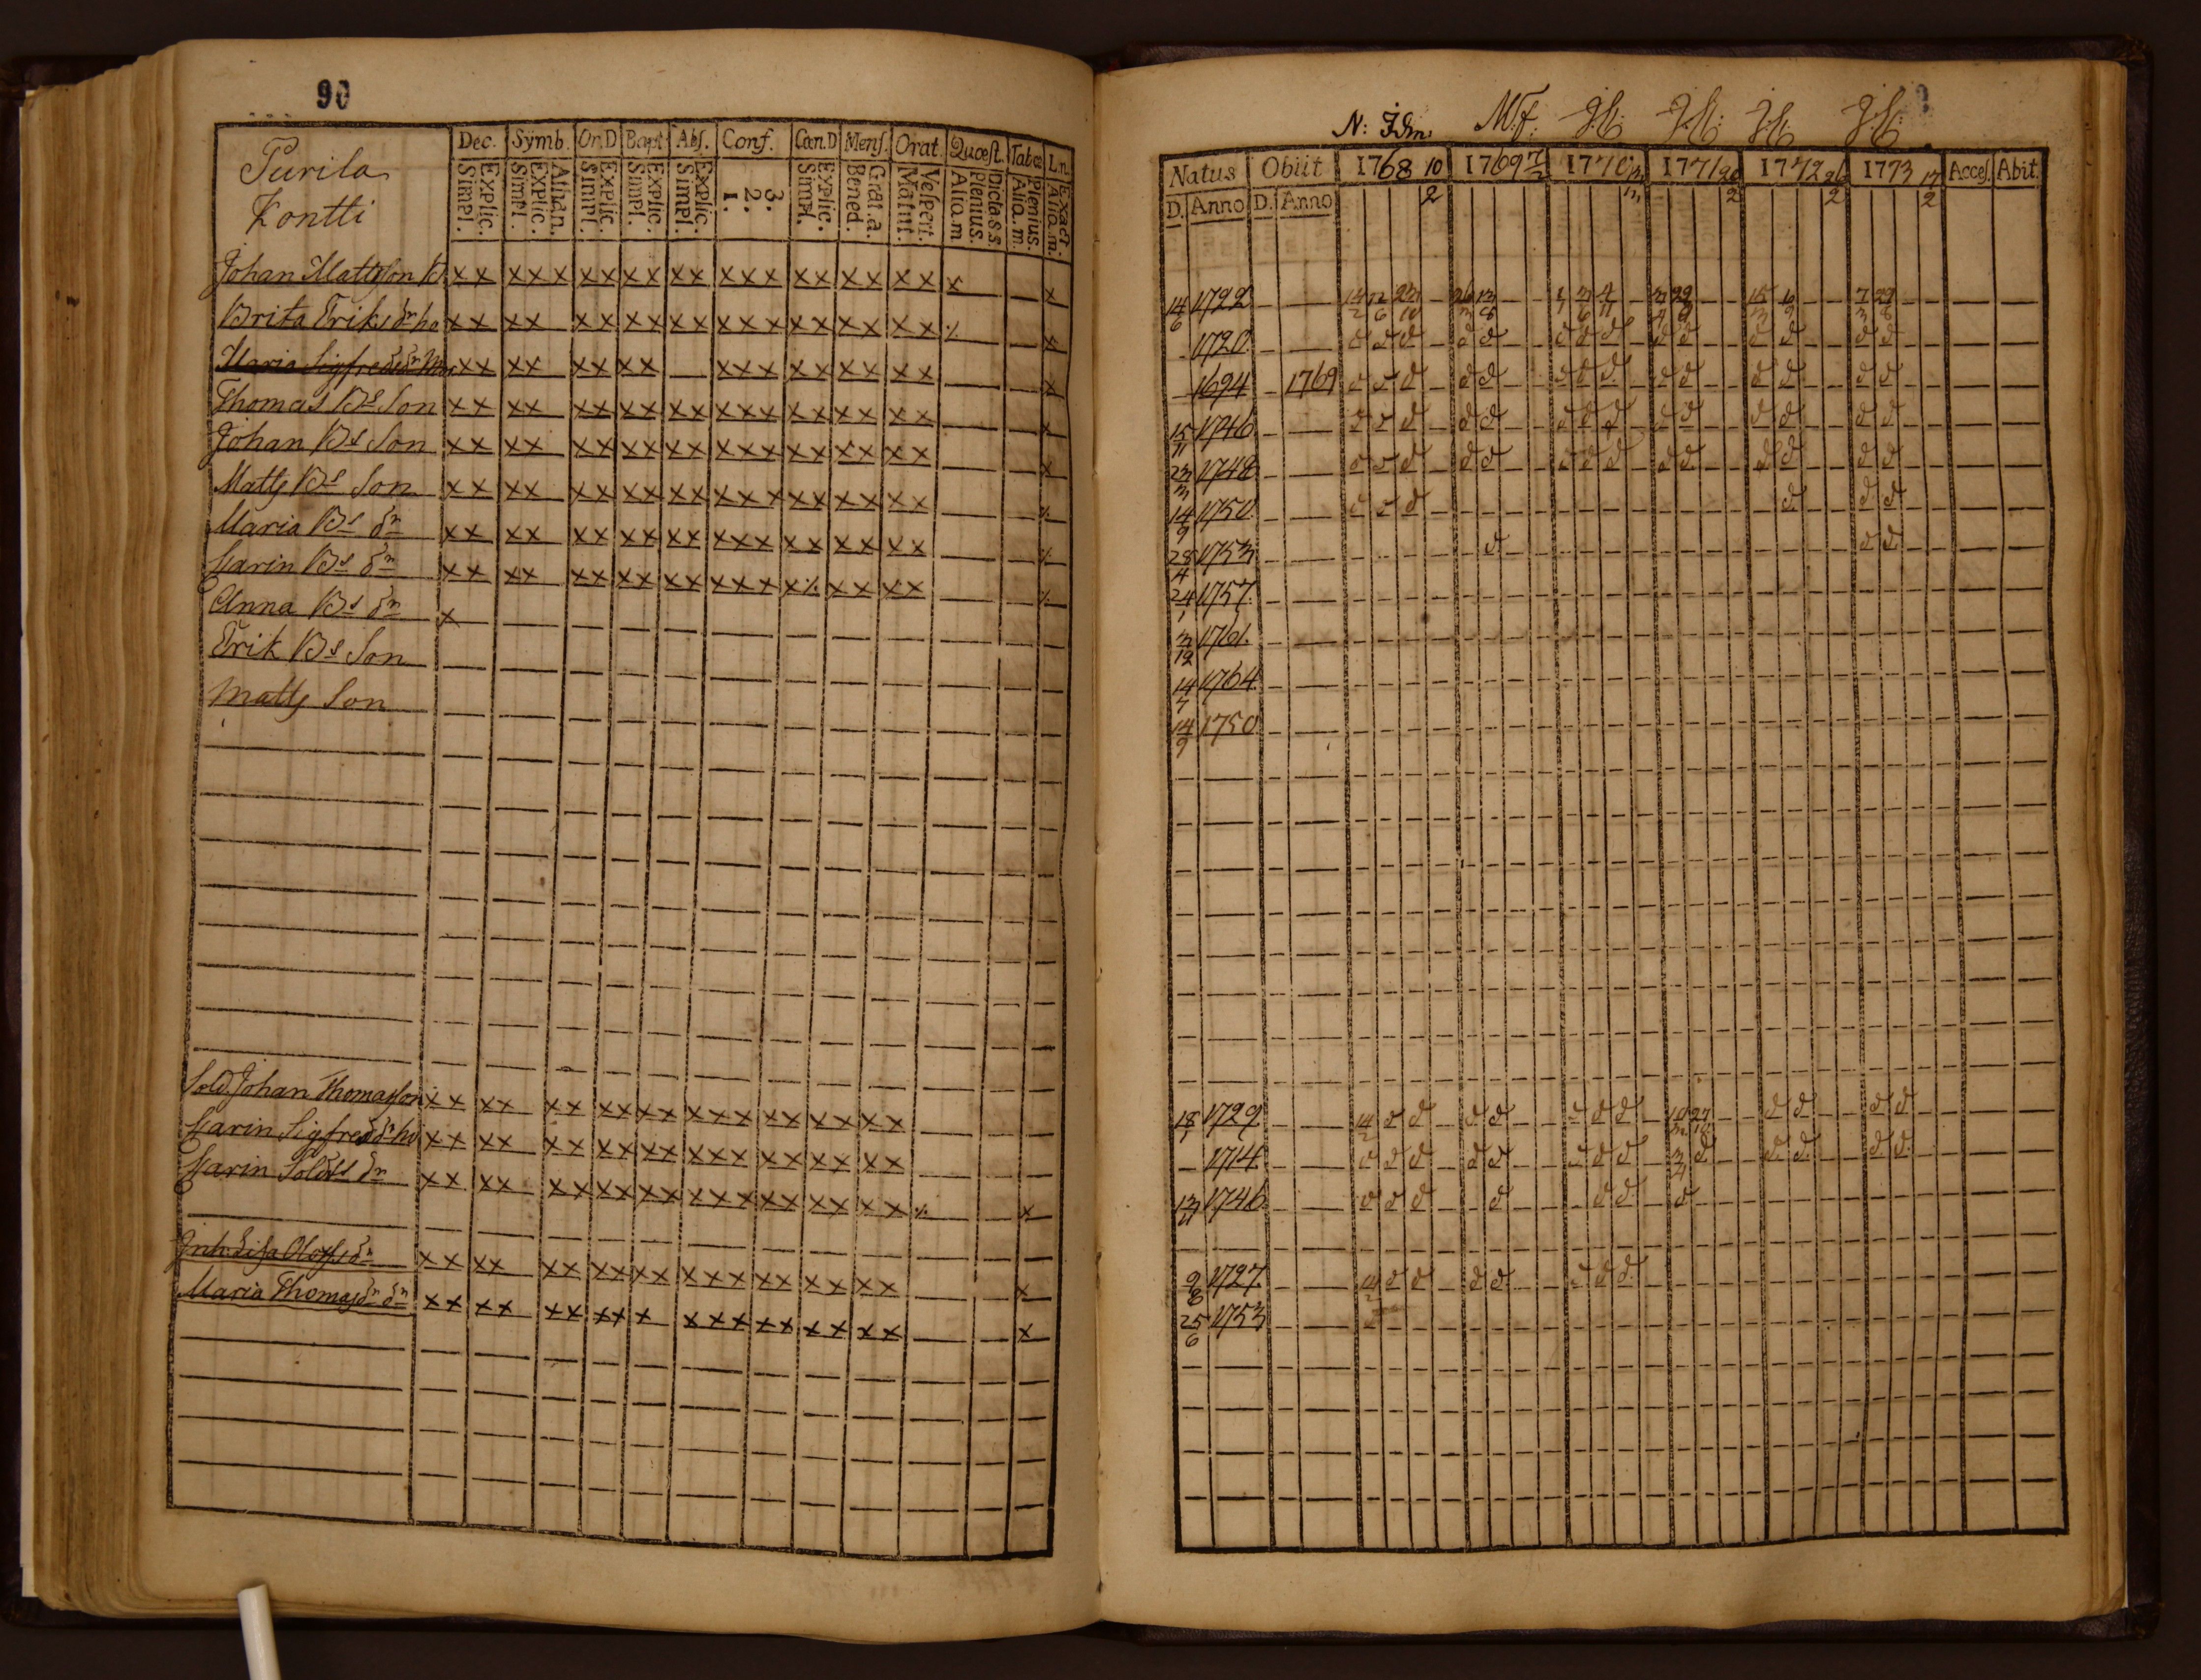 90
Purila
Kontti
Dec. Symb. Or.D Bapt. Abs. Conf. Cœn.D Mens. Orat. Quæst. Tabœ Ln
Explic. Simpl. Athan. Explic. Simpl. Explic. Simpl. Explic. Simpl. Explic. Simpl. 3. 2. 1. Explic. Simpl. Grat. a. Bened. Vesperi. Matut. Dict. a. s. s. Plenius. Aliq. m Plenius. Aliq. m. Exact. Aliq. m.
Johan Mattsson B. x x x x x x x x x x x x x x x x x x x x x x
Brita Eriksdr ho x x x x x x x x x x x x x x x x x x x ⁒ x
Maria Sigfredsdr Mor x x x x x x x x x x x x x x x x x x
Thomas Bs Son x x x x x x x x x x x x x x x x x x x x
Johan Bs Son x x x x x x x x x x x x x x x x x x x x
Matts Bs Son x x x x x x x x x x x x x x x x x x x ⁒
Maria Bs dr x x x x x x x x x x x x x x x x x x x ⁒
Karin Bs dr x x x x x x x x x x x x x x ⁒ x x x x ⁒
Anna Bs dr x
Erik Bs Son
Matts Son
Sold. Johan Thomasson x x x x x x x x x x x x x x x x x x x
Karin Sigfredsdr ho x x x x x x x x x x x x x x x x x x x
Karin Solds dr x x x x x x x x x x x x x x x x x x x ⁒ x
Inh. Lisa Olofsdr x x x x x x x x x x x x x x x x x x x x
Maria Thomasdr dr x x x x x x x x x x x x x x x x x x x
N: Idm: M.f: J.H: J.H: J.H J.H:
Natus Obiit 1768 10/2 1769 7/2 1770 1771 20/2 1772 26/2 1773 17/2 Acces. Abit.
D. Anno D. Anno
14/6 1722
1720 d d d d d d d d d d d d d d
1694 1769 d d d d d d d d d d d d d d
15/11 1746 d d d d d d d d d d d d d d
23/3 1748 d d d d d d d d d d d d d d
14/9 1750 d d d d d d
28/4 1753 d d d
24/1 1757
3/12 1761
14/7 1764
14/9 1750
18/1 1729 14/2 d d d d d d d 10/3 27/10 d d d d
1714 d d d d d d d d 3/4 d d d d d
13/11 1746 d d d d d d d
9/8 1727 14/2 d d d d d d d
25/6 1753